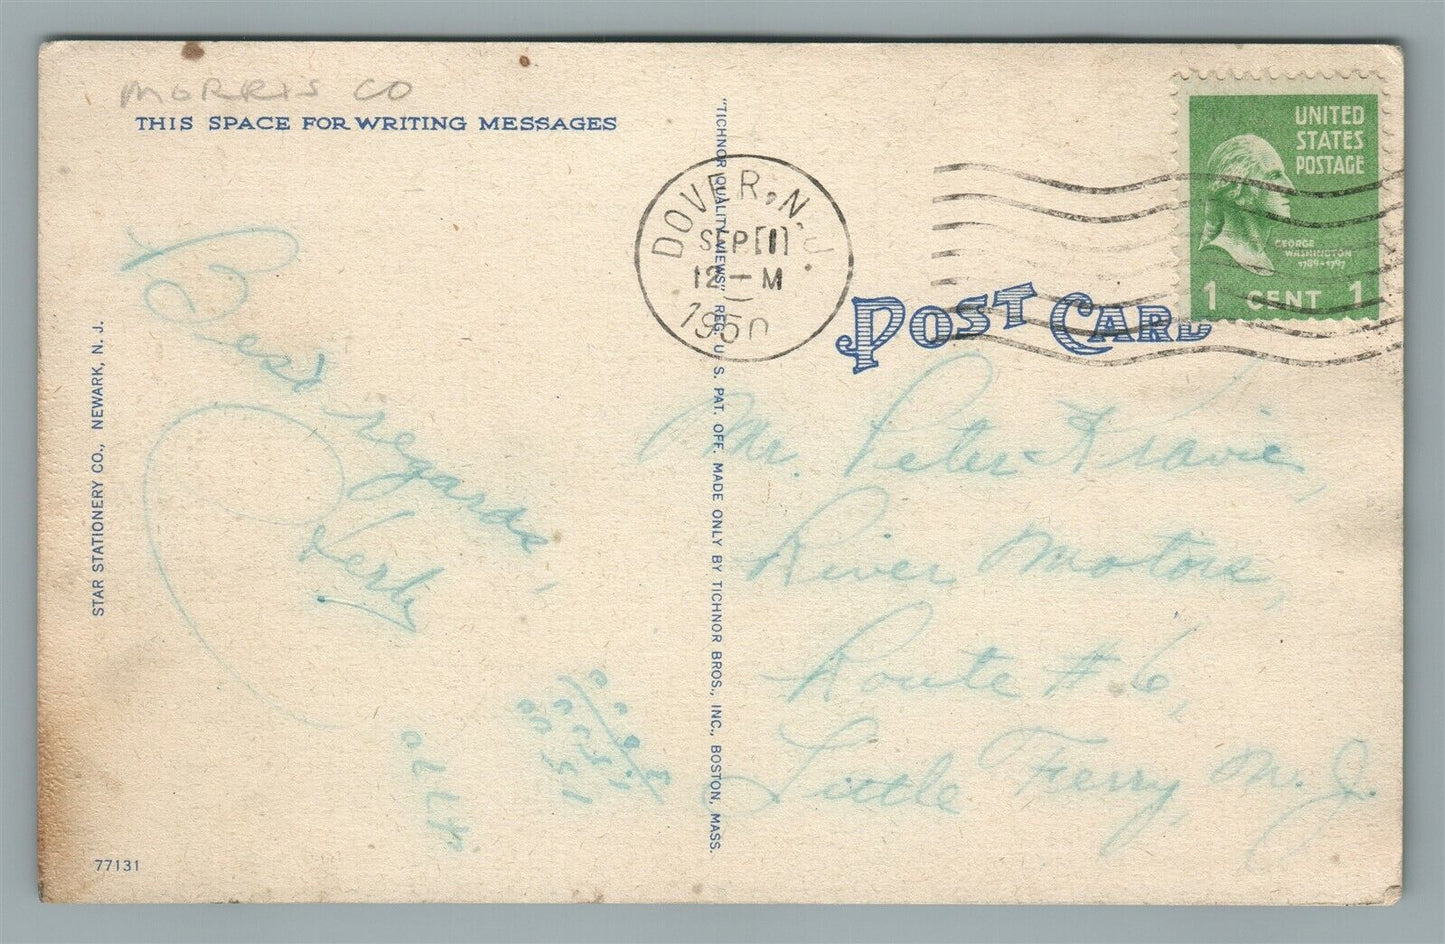 MORRIS CO
THIS SPACE FOR WRITING MESSAGES
Best regards,
Herb
STAR STATIONERY CO., NEWARK, N. J.
77131
"TICHNOR QUALITY VIEWS" REG. U. S. PAT. OFF. MADE ONLY BY TICHNOR BROS., INC., BOSTON, MASS.
DOVER, N.J.
SEP 11
12 - M
1950
UNITED
STATES
POSTAGE
GEORGE
WASHINGTON
1789-1797
1 CENT 1
POST CARD
Mr. Peter
River Motors,
Route #6,
Little Ferry, N.J.